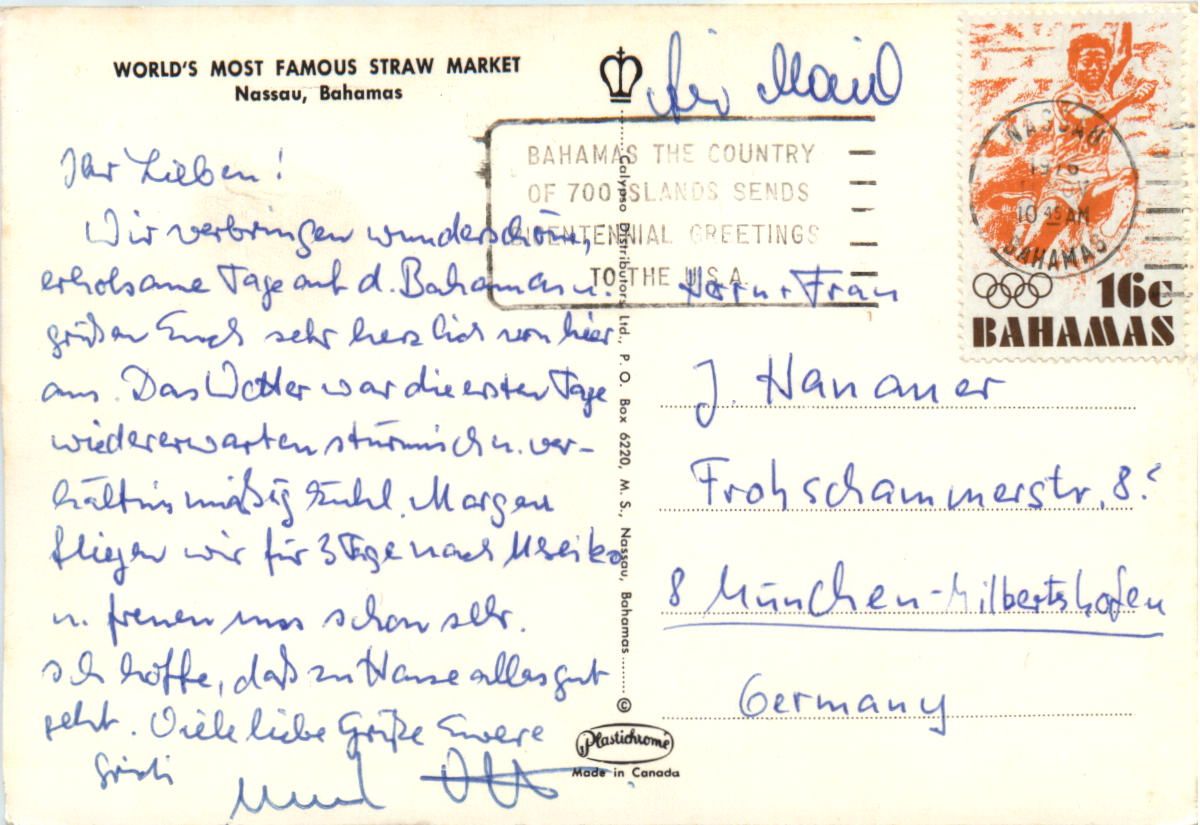 WORLD'S MOST FAMOUS STRAW MARKET
Nassau, Bahamas
Air Mail
BAHAMAS THE COUNTRY
OF 700 ISLANDS SENDS
BICENTENNIAL GREETINGS
TO THE U.S.A.
NASSAU
1976
10 45 AM
BAHAMAS
16c
BAHAMAS
Ihr Lieben!
Wir verbringen wunderschöne,
erholsame Tage auf d. Bahamas u.
grüßen Euch sehr herzlich von hier
aus. Das Wetter war die ersten Tage
wiedererwarten stürmisch u. ver-
hältnismäßig kühl. Morgen
fliegen wir für 3 Tage nach Mexiko
u. freuen uns schon sehr.
Ich hoffe, daß zu Hause alles gut
geht. Viele liebe Grüße Euere
und
Calypso Distributors Ltd., P. O. Box 6220, M. S., Nassau, Bahamas
©
Plastichrome
Made in Canada
Herrn + Frau
J. Hanauer
Frohschammerstr. 8
8 München-Milbertshofen
Germany